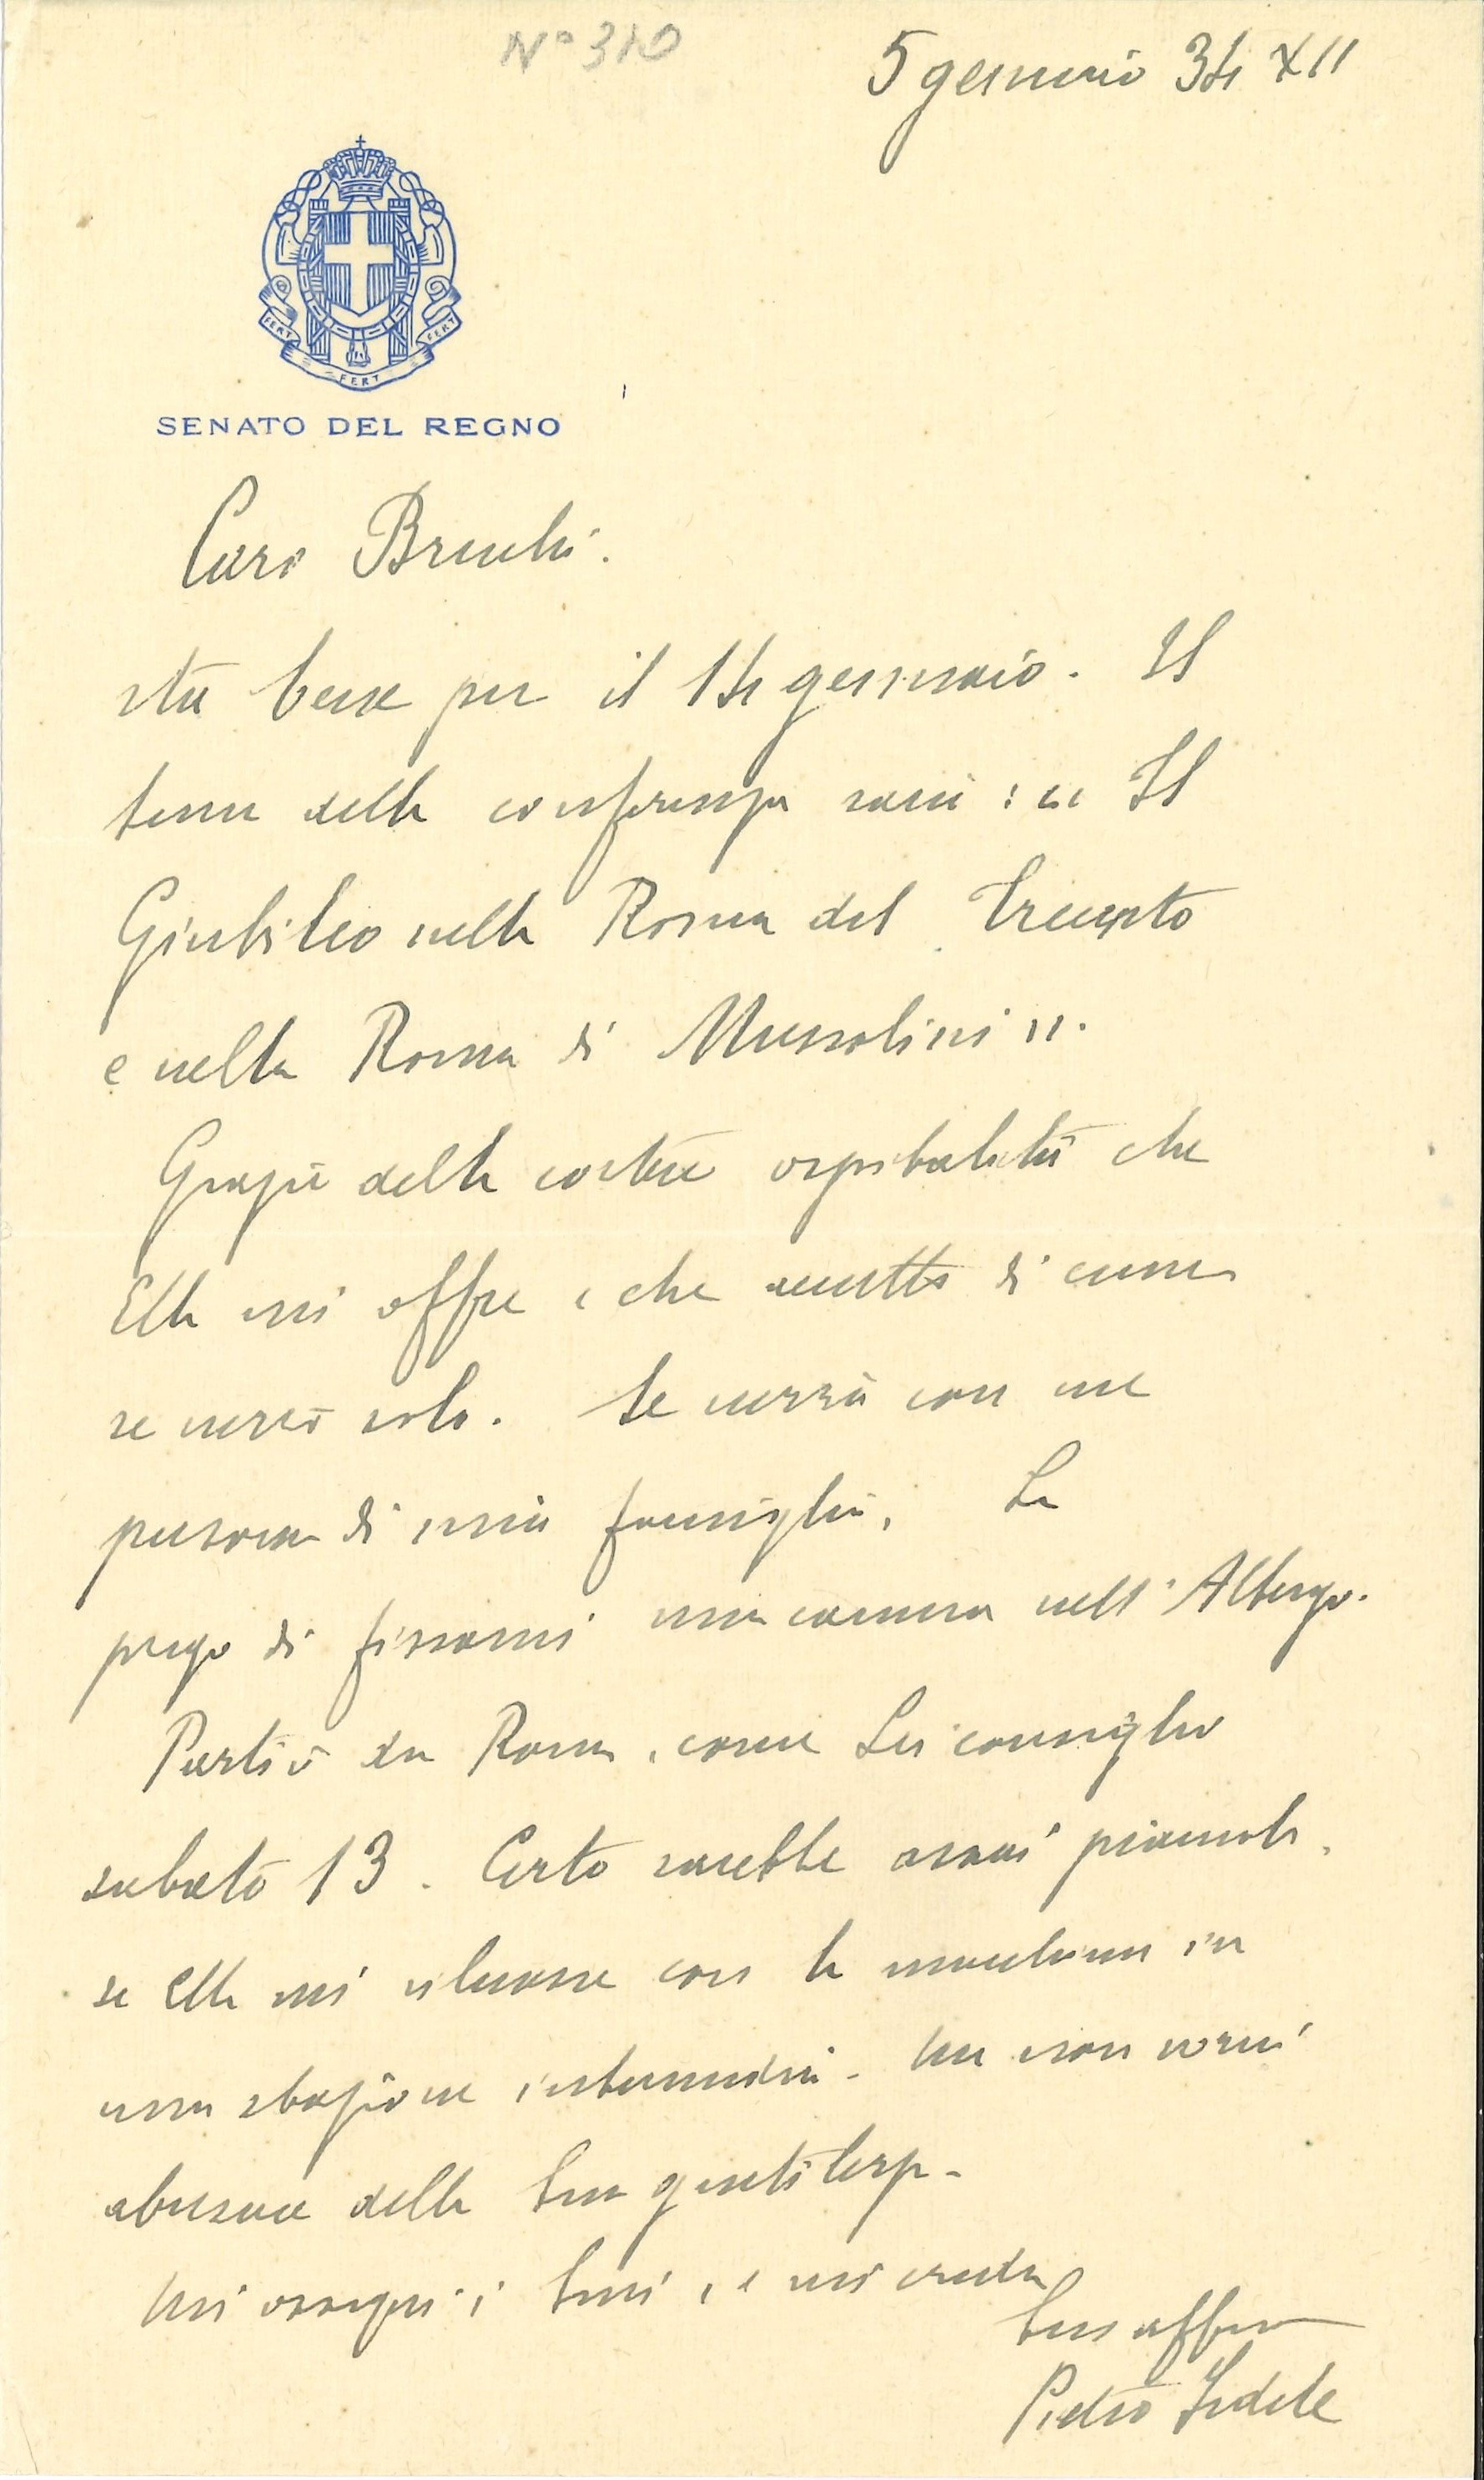 N° 310
5 gennaio 34 XII
FERT FERT FERT
SENATO DEL REGNO
Caro Bruchi.
sta bene per il 14 gennaio. Il
tema della conferenza sarà : " Il
Giubileo nella Roma del Trecento
e nella Roma di Mussolini ".
Grazie della cortese ospitalità che
Ella mi offre e che accetto di cuore
se verrò solo. Se verrà con me
persona di mia famiglia, La
prego di fissarmi una camera nell'Albergo.
Partirò da Roma, come Lei consiglia
sabato 13. Certo sarebbe assai piacevole,
se Ella mi rilevasse con la macchina in
una stazione intermedia. Ma non vorrei
abusare della Sua gentilezza.
Mi ossequi i Suoi, e mi creda
Suo aff.mo
Pietro Fedele